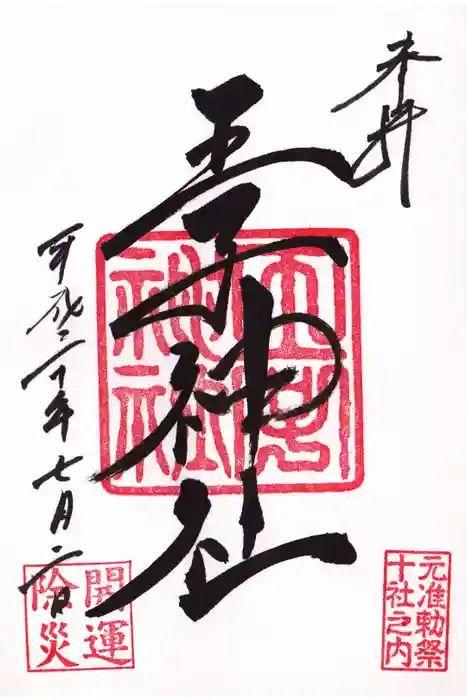 奉拝
元准勅祭
十社之内
王子神社
王子
神社
平成二十年七月二日
開運
除災